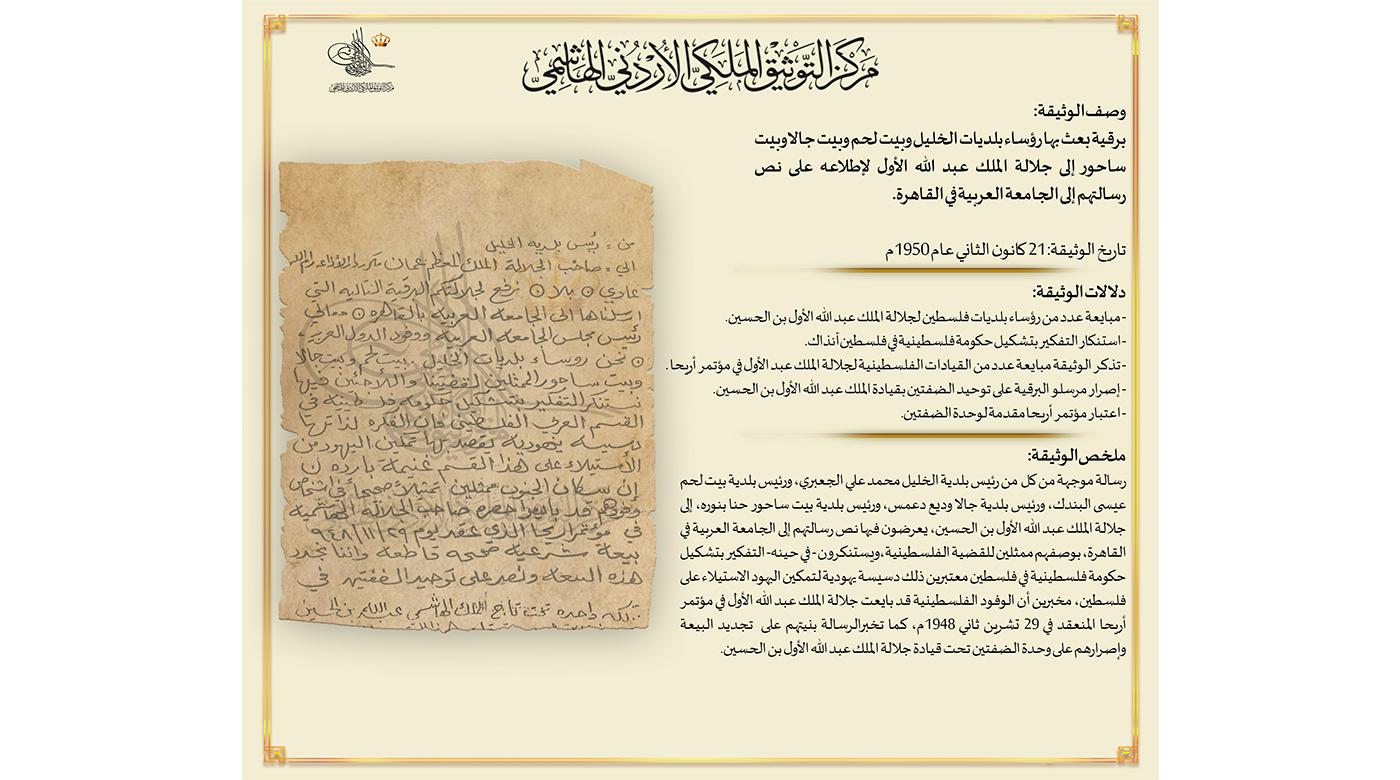 مركز التوثيق الملكي الأردني الهاشمي
مركز التوثيق الملكي الأردني الهاشمي
وصف الوثيقة:
برقية بعث بها رؤساء بلديات الخليل وبيت لحم وبيت جالا وبيت
ساحور إلى جلالة الملك عبد الله الأول لإطلاعه على نص
رسالتهم إلى الجامعة العربية في القاهرة.
تاريخ الوثيقة: 21 كانون الثاني عام 1950م
دلالات الوثيقة:
- مبايعة عدد من رؤساء بلديات فلسطين لجلالة الملك عبد الله الأول بن الحسين.
- استنكار التفكير بتشكيل حكومة فلسطينية في فلسطين آنذاك.
- تذكر الوثيقة مبايعة عدد من القيادات الفلسطينية لجلالة الملك عبد الأول في مؤتمر أريحا.
- إصرار مرسلو البرقية على توحيد الضفتين بقيادة الملك عبد الله الأول بن الحسين.
- اعتبار مؤتمر أريحا مقدمة لوحدة الضفتين.
ملخص الوثيقة:
رسالة موجهة من كل من رئيس بلدية الخليل محمد علي الجعبري، ورئيس بلدية بيت لحم
عيسى البندك، ورئيس بلدية جالا وديع دعمس، ورئيس بلدية بيت ساحور حنا بنوره، إلى
جلالة الملك عبد الله الأول بن الحسين، يعرضون فيها نص رسالتهم إلى الجامعة العربية في
القاهرة، بوصفهم ممثلين للقضية الفلسطينية، ويستنكرون - في حينه- التفكير بتشكيل
حكومة فلسطينية في فلسطين معتبرين ذلك دسيسة يهودية لتمكين اليهود الاستيلاء على
فلسطين، مخبرين أن الوفود الفلسطينية قد بايعت جلالة الملك عبد الله الأول في مؤتمر
أريحا المنعقد في 29 تشرين ثاني 1948م، كما تخبر الرسالة بنيتهم على تجديد البيعة
وإصرارهم على وحدة الضفتين تحت قيادة جلالة الملك عبد الله الأول بن الحسين.
من = رئيس بلدية الخليل
الى = صاحب الجلالة الملك المعظم عمان
عادي ⊙ بلا ⊙ نرفع لجلالتكم البرقية التالية التي
ارسلناها الى الجامعة العربية بالقاهرة ⊙ معالي
رئيس مجلس الجامعة العربية ووفود الدول العربية
⊙ نحن روساء بلديات الخليل وبيت لحم وبيت جالا
وبيت ساحور الممثلين لقضيتنا واللاجئين فيها
نستنكر التفكير بتشكيل حكومة فلسطينية في
القسم العربي الفلسطيني فان الفكرة لذاتها
دسيسة يهودية يقصد بها تمكين اليهود من
الاستيلاء على هذا القسم غنيمة باردة ن
إن سكان الجنوب ممثلين تمثيلا صحيحا في اشخاص
وفودهم قد بايعوا حضرة صاحب الجلالة الهاشمية
في مؤتمر اريحا الذي عقد يوم ٢٩/١١/٩٤٨
بيعة شرعية صحيحة قاطعة واننا نجدد
هذه البيعة ونصر على توحيد الضفتين في
واحدة تحت تاج الملك الهاشمي عبدالله بن الحسين